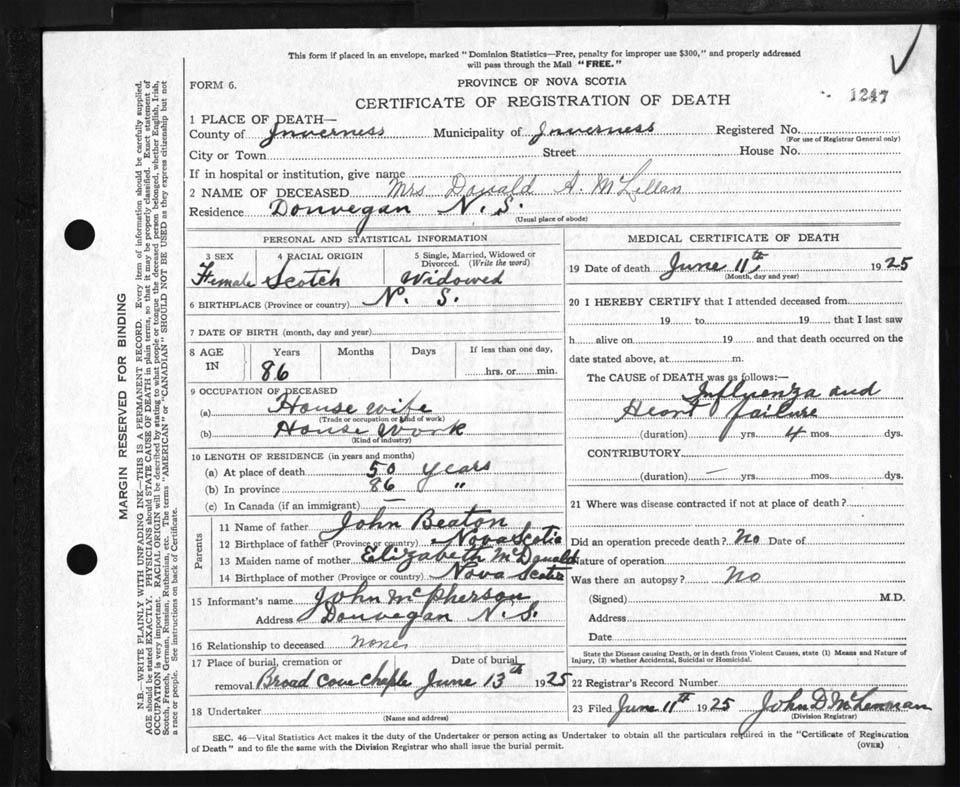 This form if placed in an envelope, marked "Dominion Statistics—Free, penalty for improper use $300," and properly addressed
will pass through the Mail "FREE."
FORM 6.
PROVINCE OF NOVA SCOTIA
CERTIFICATE OF REGISTRATION OF DEATH
1247
1 PLACE OF DEATH—
County of Inverness Municipality of Inverness Registered No.
(For use of Registrar General only)
City or Town Street House No.
If in hospital or institution, give name
2 NAME OF DECEASED Mrs Donald A. McLellan
Residence Donvegan N. S.
(Usual place of abode)
PERSONAL AND STATISTICAL INFORMATION
3 SEX 4 RACIAL ORIGIN 5 Single, Married, Widowed or
Divorced. (Write the word)
Female Scotch Widowed
6 BIRTHPLACE (Province or country) N. S.
7 DATE OF BIRTH (month, day and year)
8 AGE Years Months Days If less than one day,
IN 86 hrs. or min.
9 OCCUPATION OF DECEASED
(a) House wife
(Trade or occupation or kind of work)
(b) House Work
(Kind of industry)
10 LENGTH OF RESIDENCE (in years and months)
(a) At place of death 50 years
(b) In province 86 "
(c) In Canada (if an immigrant) —
Parents
11 Name of father John Beaton
12 Birthplace of father (Province or country) Nova Scotia
13 Maiden name of mother Elizabeth McDonald
14 Birthplace of mother (Province or country) Nova Scotia
15 Informant's name John McPherson
Address Donvegan N. S.
16 Relationship to deceased None
17 Place of burial, cremation or Date of burial
removal Broad Cove Chaple June 13th 1925
18 Undertaker
(Name and address)
MEDICAL CERTIFICATE OF DEATH
19 Date of death June 11th 1925
(Month, day and year)
20 I HEREBY CERTIFY that I attended deceased from
19 to 19 that I last saw
h alive on 19 and that death occurred on the
date stated above, at m.
The CAUSE of DEATH was as follows:—
Influenza and
Heart failure
(duration) yrs. 4 mos. dys.
CONTRIBUTORY
(duration) — yrs. mos. dys.
21 Where was disease contracted if not at place of death?
Did an operation precede death? No Date of
Nature of operation
Was there an autopsy? No
(Signed) M.D.
Address
Date
State the Disease causing Death, or in death from Violent Causes, state (1) Means and Nature of
Injury, (2) whether Accidental, Suicidal or Homicidal.
22 Registrar's Record Number
23 Filed June 11th 1925 John D McLennan
(Division Registrar)
SEC. 46—Vital Statistics Act makes it the duty of the Undertaker or person acting as Undertaker to obtain all the particulars required in the "Certificate of Registration
of Death" and to file the same with the Division Registrar who shall issue the burial permit.
(OVER)
MARGIN RESERVED FOR BINDING
N.B.—WRITE PLAINLY WITH UNFADING INK—THIS IS A PERMANENT RECORD. Every item of information should be carefully supplied.
AGE should be stated EXACTLY. PHYSICIANS should STATE CAUSE OF DEATH in plain terms, so that it may be properly classified. Exact statement of
OCCUPATION is very important. RACIAL ORIGIN will be described by stating to what people or tongue the deceased person belonged, whether English, Irish,
Scotch, French, German, Russian, Ruthenian, etc. The terms "AMERICAN" or "CANADIAN" SHOULD NOT BE USED as they express citizenship but not
a race or people. See instructions on back of Certificate.